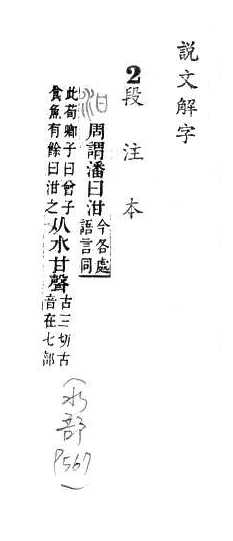 説文解字
2段注本
泔 周謂潘曰泔今各處語言同
此荀卿子曰曾子食魚有餘曰泔之从水甘聲古三切古音在七部
(水部 P567)